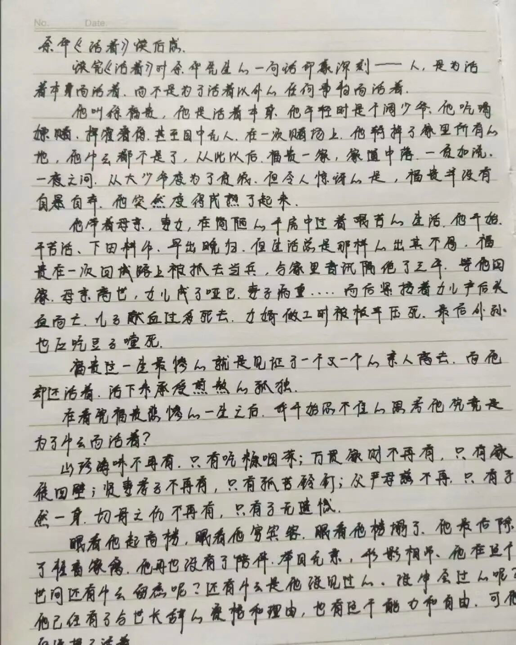 No.          Date
余华《活着》读后感.
读完《活着》时余华先生的一句话印象深刻 —— 人,是为活
着本身而活着,而不是为了活着以外的任何事物而活着.
他叫徐福贵,他是活着本身.他年轻时是个阔少爷.他吃喝
嫖赌,挥霍看得,甚至目中无人.在一次赌场上.他输掉了家里所有的
地,他什么都不是了,从此以后.福贵一家,家道中落.一夜加洗.
一夜之间.从大少爷变为了贫民.但令人惊讶的是,福贵并没有
自暴自弃.他突然变得成熟了起来.
他带着母亲,妻女,在简陋的平房中过着艰苦的生活.他开始
干苦活、下田耕作.早出晚归.但生活总是那样的出其不意.福
贵在一次回城路上被抓去当兵,与家里音讯隔绝了三年.等他回
家.母亲离世,女儿成了哑巴.妻子病重....而后紧接着女儿产后失
血而亡.儿子献血过多死去.女婿做工时被板车压死.最后外孙
也因吃豆子噎死.
福贵这一生最惨的就是见证了一个又一个的亲人离去.而他
却还活着.活下来承受煎熬的孤独.
在看完福贵悲惨的一生之后.我开始忍不住的思考他究竟是
为了什么而活着?
山珍海味不再有.只有吃糠咽菜;万贯家财不再有,只有家
徒四壁;娇妻孝子不再有,只有孤苦伶仃;父严母慈不再.只有孑
然一身.切身之仇不再有.只有了无遗憾.
眼看他起高楼,眼看他宴宾客.眼看他楼塌了.他最后除
了牲畜家禽.他再也没有了陪伴.举目无亲,形影相吊.他在这个
世间还有什么留恋呢?还有什么是他没见过的、没体会过的呢?
他已经有了与世长辞的资格和理由,也有这个能力和自由.可他